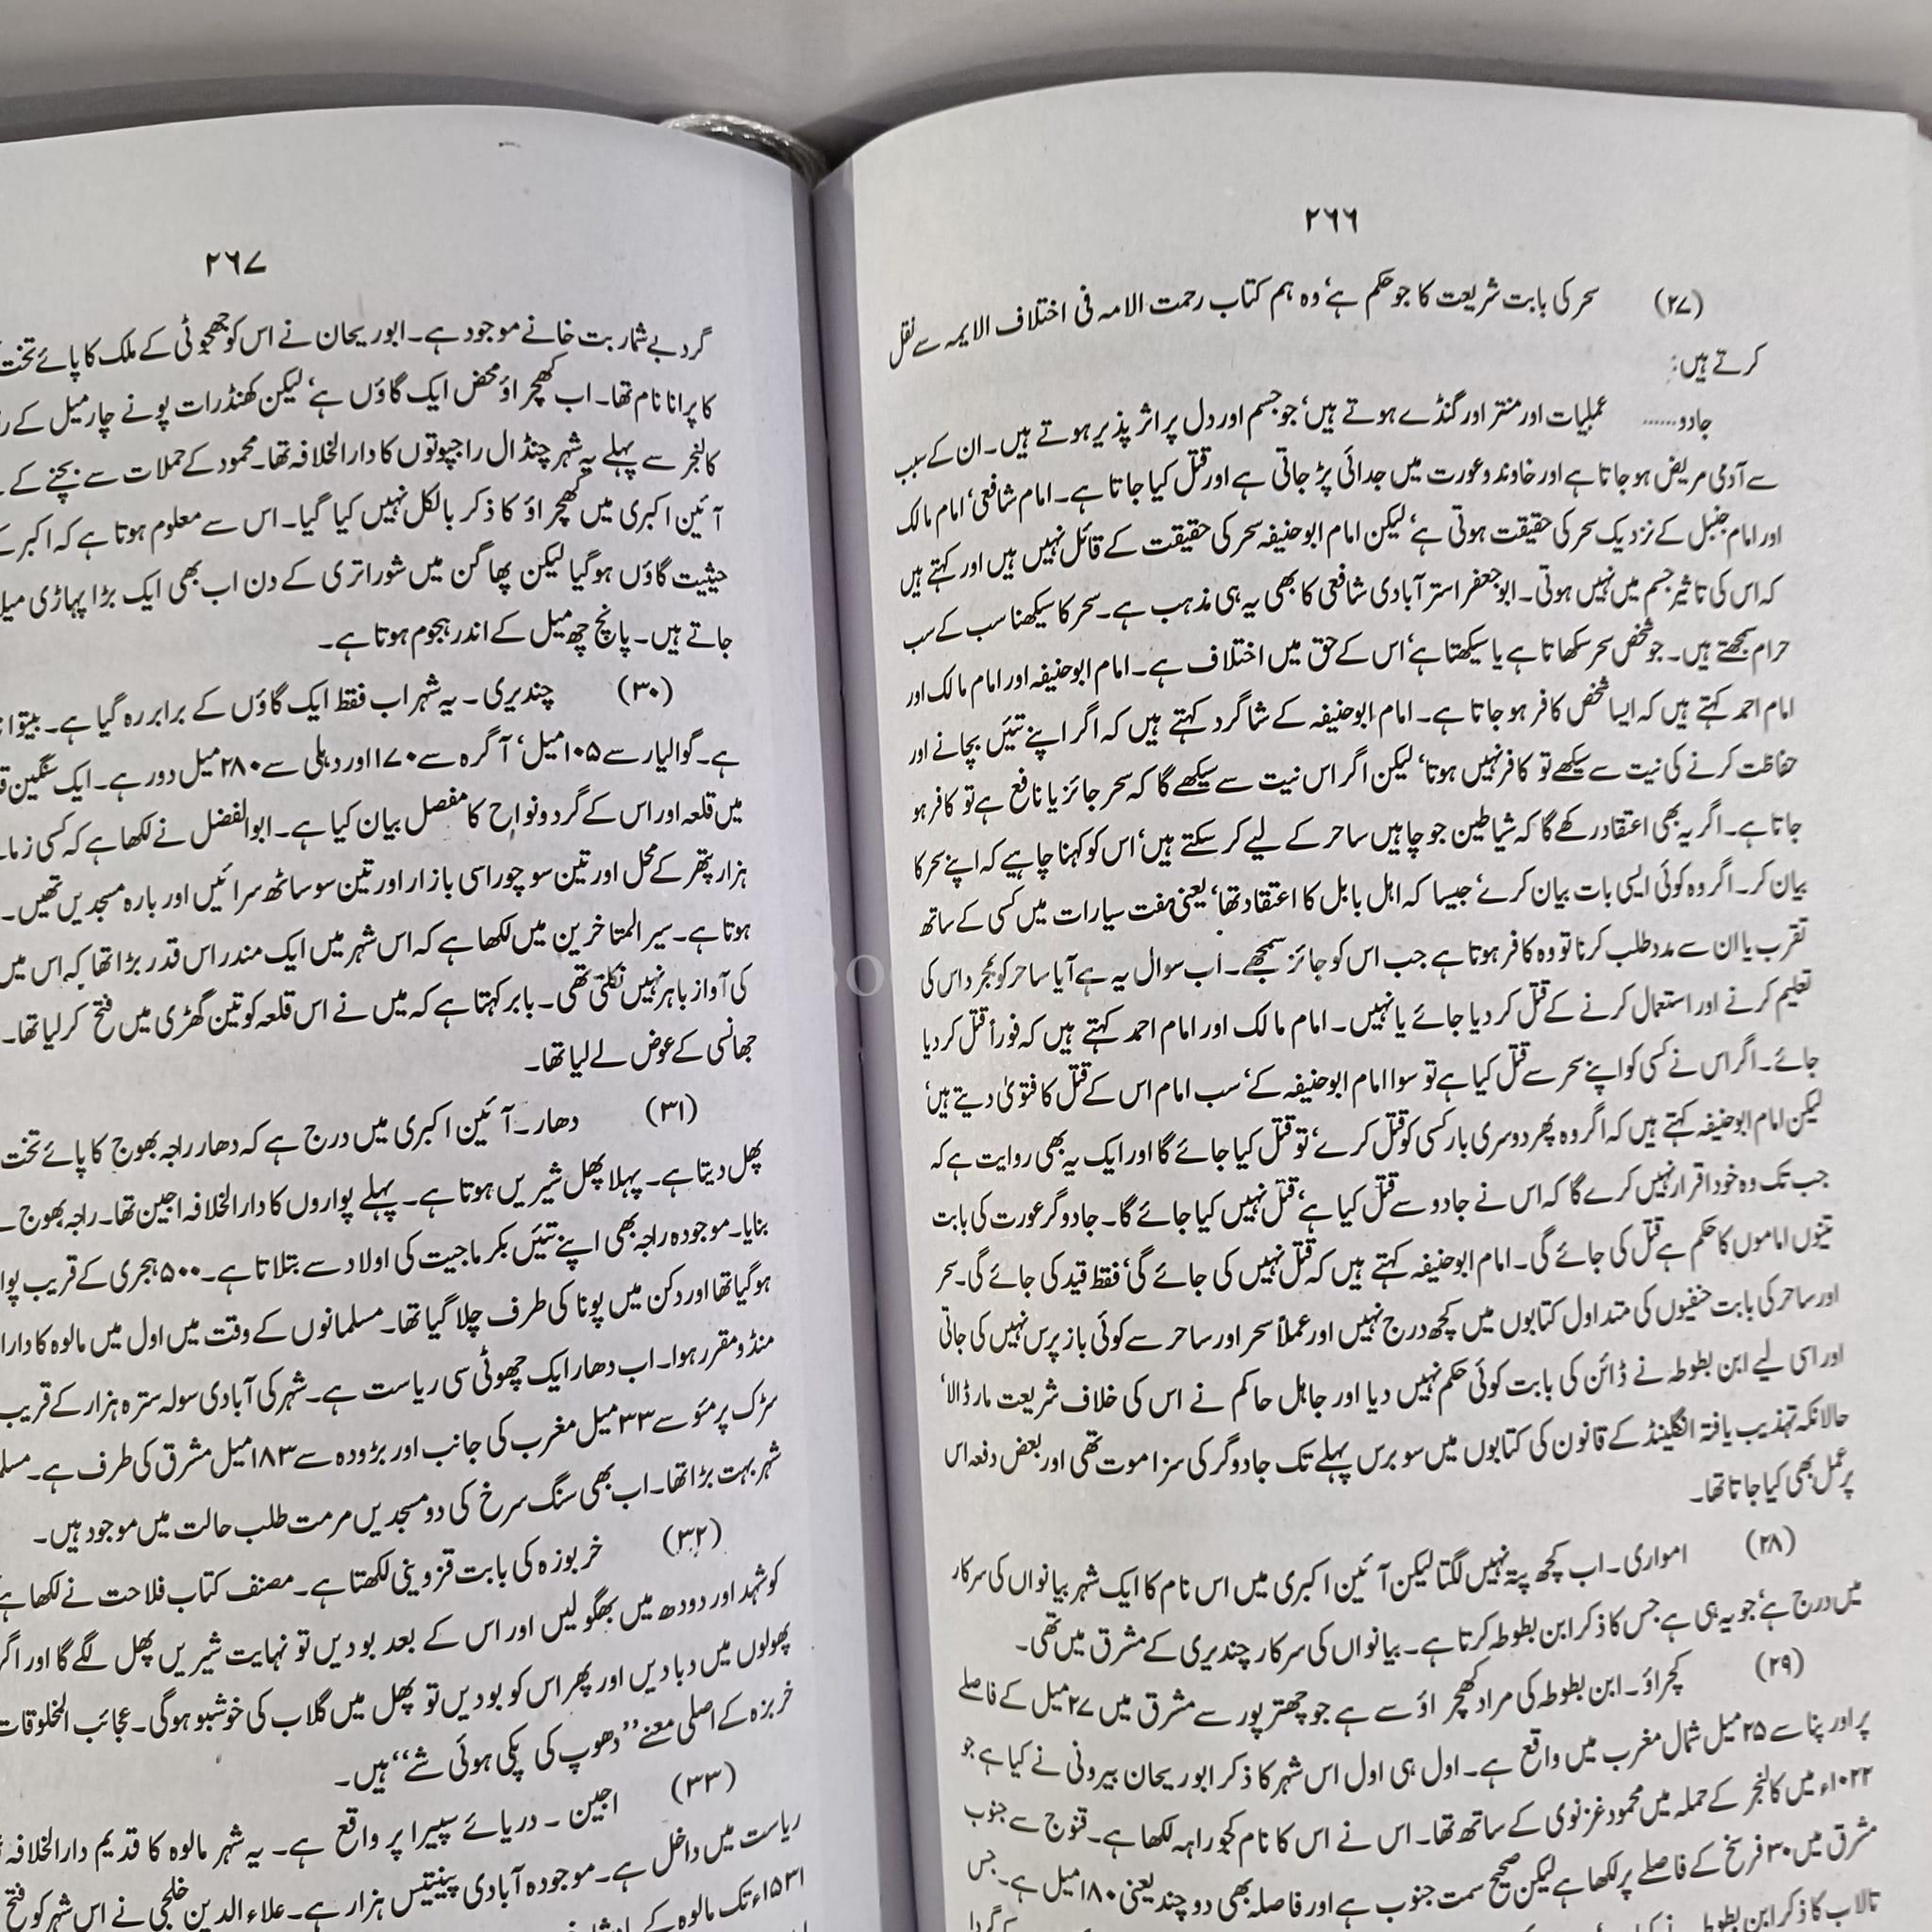 ۲۶۶
(۲۷) سحر کی بابت شریعت کا جو حکم ہے‘ وہ ہم کتاب رحمت الامہ فی اختلاف الایمہ سے نقل
کرتے ہیں:
جادو...... عملیات اور منتر اور گنڈے ہوتے ہیں‘ جو جسم اور دل پر اثر پذیر ہوتے ہیں۔ ان کے سبب
سے آدمی مریض ہو جاتا ہے اور خاوند و عورت میں جدائی پڑ جاتی ہے اور قتل کیا جاتا ہے۔ امام شافعی‘ امام مالک
اور امام حنبل کے نزدیک سحر کی حقیقت ہوتی ہے‘ لیکن امام ابوحنیفہ سحر کی حقیقت کے قائل نہیں ہیں اور کہتے ہیں
کہ اس کی تاثیر جسم میں نہیں ہوتی۔ ابوجعفر استر آبادی شافعی کا بھی یہ ہی مذہب ہے۔ سحر کا سیکھنا سب کے سب
حرام سمجھتے ہیں۔ جو شخص سحر سکھاتا ہے یا سیکھتا ہے‘ اس کے حق میں اختلاف ہے۔ امام ابوحنیفہ اور امام مالک اور
امام احمد کہتے ہیں کہ ایسا شخص کافر ہو جاتا ہے۔ امام ابوحنیفہ کے شاگرد کہتے ہیں کہ اگر اپنے تئیں بچانے اور
حفاظت کرنے کی نیت سے سیکھے تو کافر نہیں ہوتا‘ لیکن اگر اس نیت سے سیکھے گا کہ سحر جائز یا نافع ہے تو کافر ہو
جاتا ہے۔ اگر یہ بھی اعتقاد رکھے گا کہ شیاطین جو چاہیں ساحر کے لیے کر سکتے ہیں‘ اس کو کہنا چاہیے کہ اپنے سحر کا
بیان کر۔ اگر وہ کوئی ایسی بات بیان کرے‘ جیسا کہ اہل بابل کا اعتقاد تھا‘ یعنی ہفت سیارات میں کسی کے ساتھ
تقرب یا ان سے مدد طلب کرنا تو وہ کافر ہوتا ہے جب اس کو جائز سمجھے۔ اب سوال یہ ہے آیا ساحر کو بمجرد اس کی
تعلیم کرنے اور استعمال کرنے کے قتل کر دیا جائے یا نہیں۔ امام مالک اور امام احمد کہتے ہیں کہ فوراً قتل کر دیا
جائے۔ اگر اس نے کسی کو اپنے سحر سے قتل کیا ہے تو سوا امام ابوحنیفہ کے‘ سب امام اس کے قتل کا فتویٰ دیتے ہیں‘
لیکن امام ابوحنیفہ کہتے ہیں کہ اگر وہ پھر دوسری بار کسی کو قتل کرے‘ تو قتل کیا جائے گا اور ایک یہ بھی روایت ہے کہ
جب تک وہ خود اقرار نہیں کرے گا کہ اس نے جادو سے قتل کیا ہے‘ قتل نہیں کیا جائے گا۔ جادوگر عورت کی بابت
تینوں اماموں کا حکم ہے قتل کی جائے گی۔ امام ابوحنیفہ کہتے ہیں کہ قتل نہیں کی جائے گی‘ فقط قید کی جائے گی۔ سحر
اور ساحر کی بابت حنفیوں کی متداول کتابوں میں کچھ درج نہیں اور عملاً سحر اور ساحر سے کوئی باز پرس نہیں کی جاتی
اور اسی لیے ابن بطوطہ نے ڈائن کی بابت کوئی حکم نہیں دیا اور جاہل حاکم نے اس کی خلاف شریعت مار ڈالا‘
حالانکہ تہذیب یافتہ انگلینڈ کے قانون کی کتابوں میں سو برس پہلے تک جادوگر کی سزا موت تھی اور بعض دفعہ اس
پر عمل بھی کیا جاتا تھا۔
(۲۸) امواری۔ اب کچھ پتہ نہیں لگتا لیکن آئین اکبری میں اس نام کا ایک شہر بیانواں کی سرکار
میں درج ہے‘ جو یہ ہی ہے جس کا ذکر ابن بطوطہ کرتا ہے۔ بیانواں کی سرکار چندیری کے مشرق میں تھی۔
(۲۹) کچراؤ۔ ابن بطوطہ کی مراد کھچر اؤ سے ہے جو چھتر پور سے مشرق میں ۲۷ میل کے فاصلے
پر اور پنا سے ۲۵ میل شمال مغرب میں واقع ہے۔ اول ہی اول اس شہر کا ذکر ابوریحان بیرونی نے کیا ہے جو
۱۰۲۲ء میں کالنجر کے حملہ میں محمود غزنوی کے ساتھ تھا۔ اس نے اس کا نام کجوراہہ لکھا ہے۔ قنوج سے جنوب
مشرق میں ۳۰ فرسخ کے فاصلے پر لکھا ہے لیکن صحیح سمت جنوب ہے اور فاصلہ بھی دو چند یعنی ۱۸۰ میل ہے۔ جس
تالاب کا ذکر ابن بطوطہ نے کیا ہے
۲۶۷
گرد بے شمار بت خانے موجود ہے۔ ابوریحان نے اس کو جھجوٹی کے ملک کا پائے تخت
کا پرانا نام تھا۔ اب کھچر اؤ محض ایک گاؤں ہے‘ لیکن کھنڈرات پونے چار میل کے
کالنجر سے پہلے یہ شہر چنڈال راجپوتوں کا دارالخلافہ تھا۔ محمود کے حملات سے بچنے کے
آئین اکبری میں کھچر اؤ کا ذکر بالکل نہیں کیا گیا۔ اس سے معلوم ہوتا ہے کہ اکبر کے
حیثیت گاؤں ہو گیا لیکن پھاگن میں شوراتری کے دن اب بھی ایک بڑا پہاڑی
جاتے ہیں۔ پانچ چھ میل کے اندر ہجوم ہوتا ہے۔
(۳۰) چندیری۔ یہ شہر اب فقط ایک گاؤں کے برابر رہ گیا ہے۔ بیتوا
ہے۔ گوالیار سے ۱۰۵ میل‘ آگرہ سے ۱۷۰ اور دہلی سے ۲۸۰ میل دور ہے۔ ایک سنگین
میں قلعہ اور اس کے گرد و نواح کا مفصل بیان کیا ہے۔ ابوالفضل نے لکھا ہے کہ کسی
ہزار پتھر کے محل اور تین سو چوراسی بازار اور تین سو ساٹھ سرائیں اور بارہ مسجدیں تھیں۔
ہوتا ہے۔ سیر المتاخرین میں لکھا ہے کہ اس شہر میں ایک مندر اس قدر بڑا تھا کہ اس میں
کی آواز باہر نہیں نکلتی تھی۔ بابر کہتا ہے کہ میں نے اس قلعہ کو تین گھڑی میں فتح کر لیا تھا۔
جھانسی کے عوض لے لیا تھا۔
(۳۱) دھار۔ آئین اکبری میں درج ہے کہ دھار راجہ بھوج کا پائے تخت
پھل دیتا ہے۔ پہلا پھل شیریں ہوتا ہے۔ پہلے پواروں کا دارالخلافہ اجین تھا۔ راجہ بھوج
بنایا۔ موجودہ راجہ بھی اپنے تئیں بکرماجیت کی اولاد سے بتلاتا ہے۔ ۵۰۰ ہجری کے قریب
ہو گیا تھا اور دکن میں پونا کی طرف چلا گیا تھا۔ مسلمانوں کے وقت میں اول میں مالوہ کا
منڈو مقرر ہوا۔ اب دھار ایک چھوٹی سی ریاست ہے۔ شہر کی آبادی سولہ سترہ ہزار کے قریب
سڑک پر مئو سے ۳۳ میل مغرب کی جانب اور بڑودہ سے ۱۸۳ میل مشرق کی طرف ہے۔
شہر بہت بڑا تھا۔ اب بھی سنگ سرخ کی دو مسجدیں مرمت طلب حالت میں موجود ہیں۔
(۳۲) خربوزہ کی بابت قزوینی لکھتا ہے۔ مصنف کتاب فلاحت نے لکھا ہے
کو شہد اور دودھ میں بھگو لیں اور اس کے بعد بو دیں تو نہایت شیریں پھل لگے گا اور اگر
پھولوں میں دبا دیں اور پھر اس کو بو دیں تو پھل میں گلاب کی خوشبو ہوگی۔ عجائب المخلوقات
خربزہ کے اصلی معنے ’’دھوپ کی پکی ہوئی شے‘‘ ہیں۔
(۳۳) اجین۔ دریائے سپیرا پر واقع ہے۔ یہ شہر مالوہ کا قدیم دارالخلافہ
ریاست میں داخل ہے۔ موجودہ آبادی پینتیس ہزار ہے۔ علاء الدین خلجی نے اس شہر کو فتح
۱۵۳۱ء تک مالوہ کے